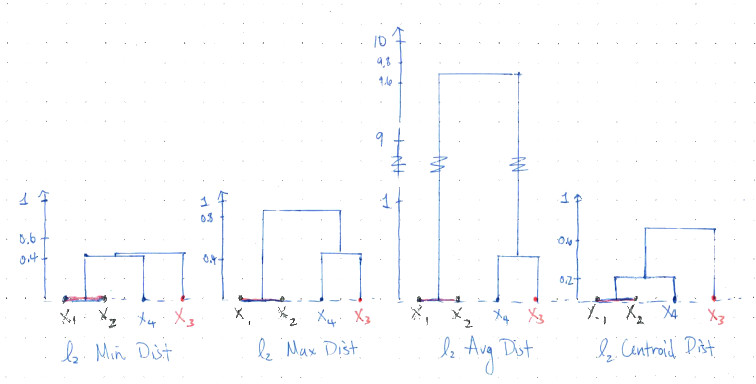 10
9.8
9.6
9
1
0.6
0.4
X₁ X₂ X₄ X₃
l₂ Min Dist
1
0.8
0.4
X₁ X₂ X₄ X₃
l₂ Max Dist
1
X₁ X₂ X₄ X₃
l₂ Avg Dist
1
0.6
0.2
X₁ X₂ X₄ X₃
l₂ Centroid Dist